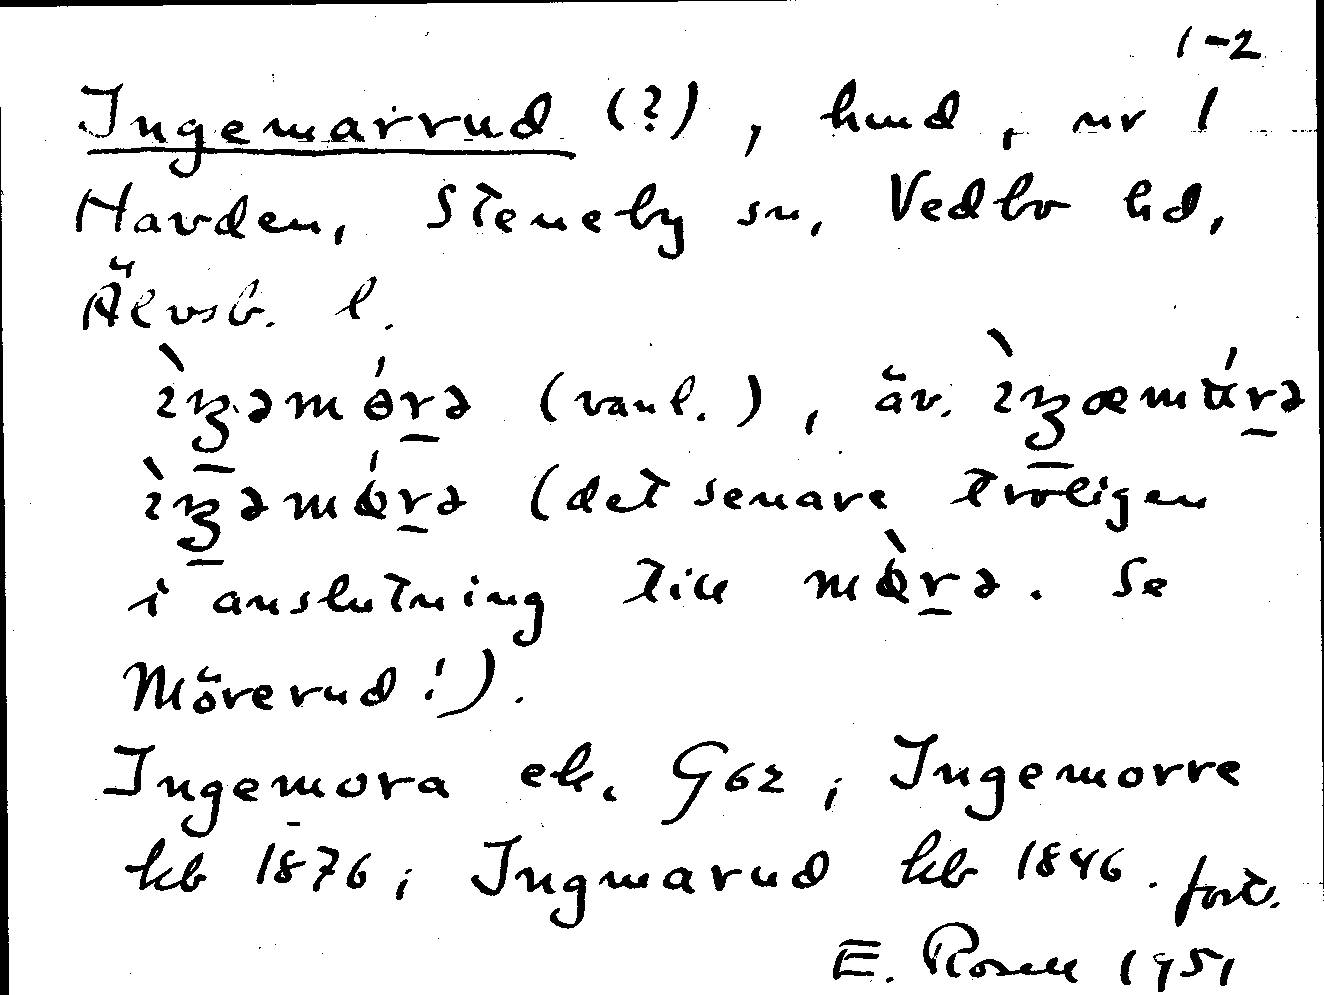 1-2
Ingemarrud (?), hmd, nr 1
Havden, Steneby sn, Vedbo hd,
Älvsb. l.
ìŋəmórə (vanl.), äv. ìŋæmárə
ìŋəmǿrə (det senare troligen
i anslutning till mǿ̀rə. Se
Mörerud!).
Ingemora ek. G62; Ingemorre
kb 1876; Ingmarud kb 1846. forts.
E. Rosell 1951